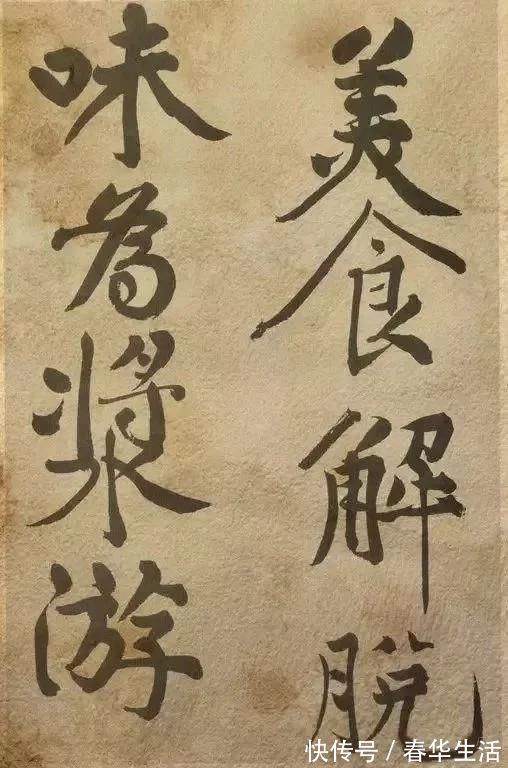 美食解脱
味为浆游
快传号/春华生活